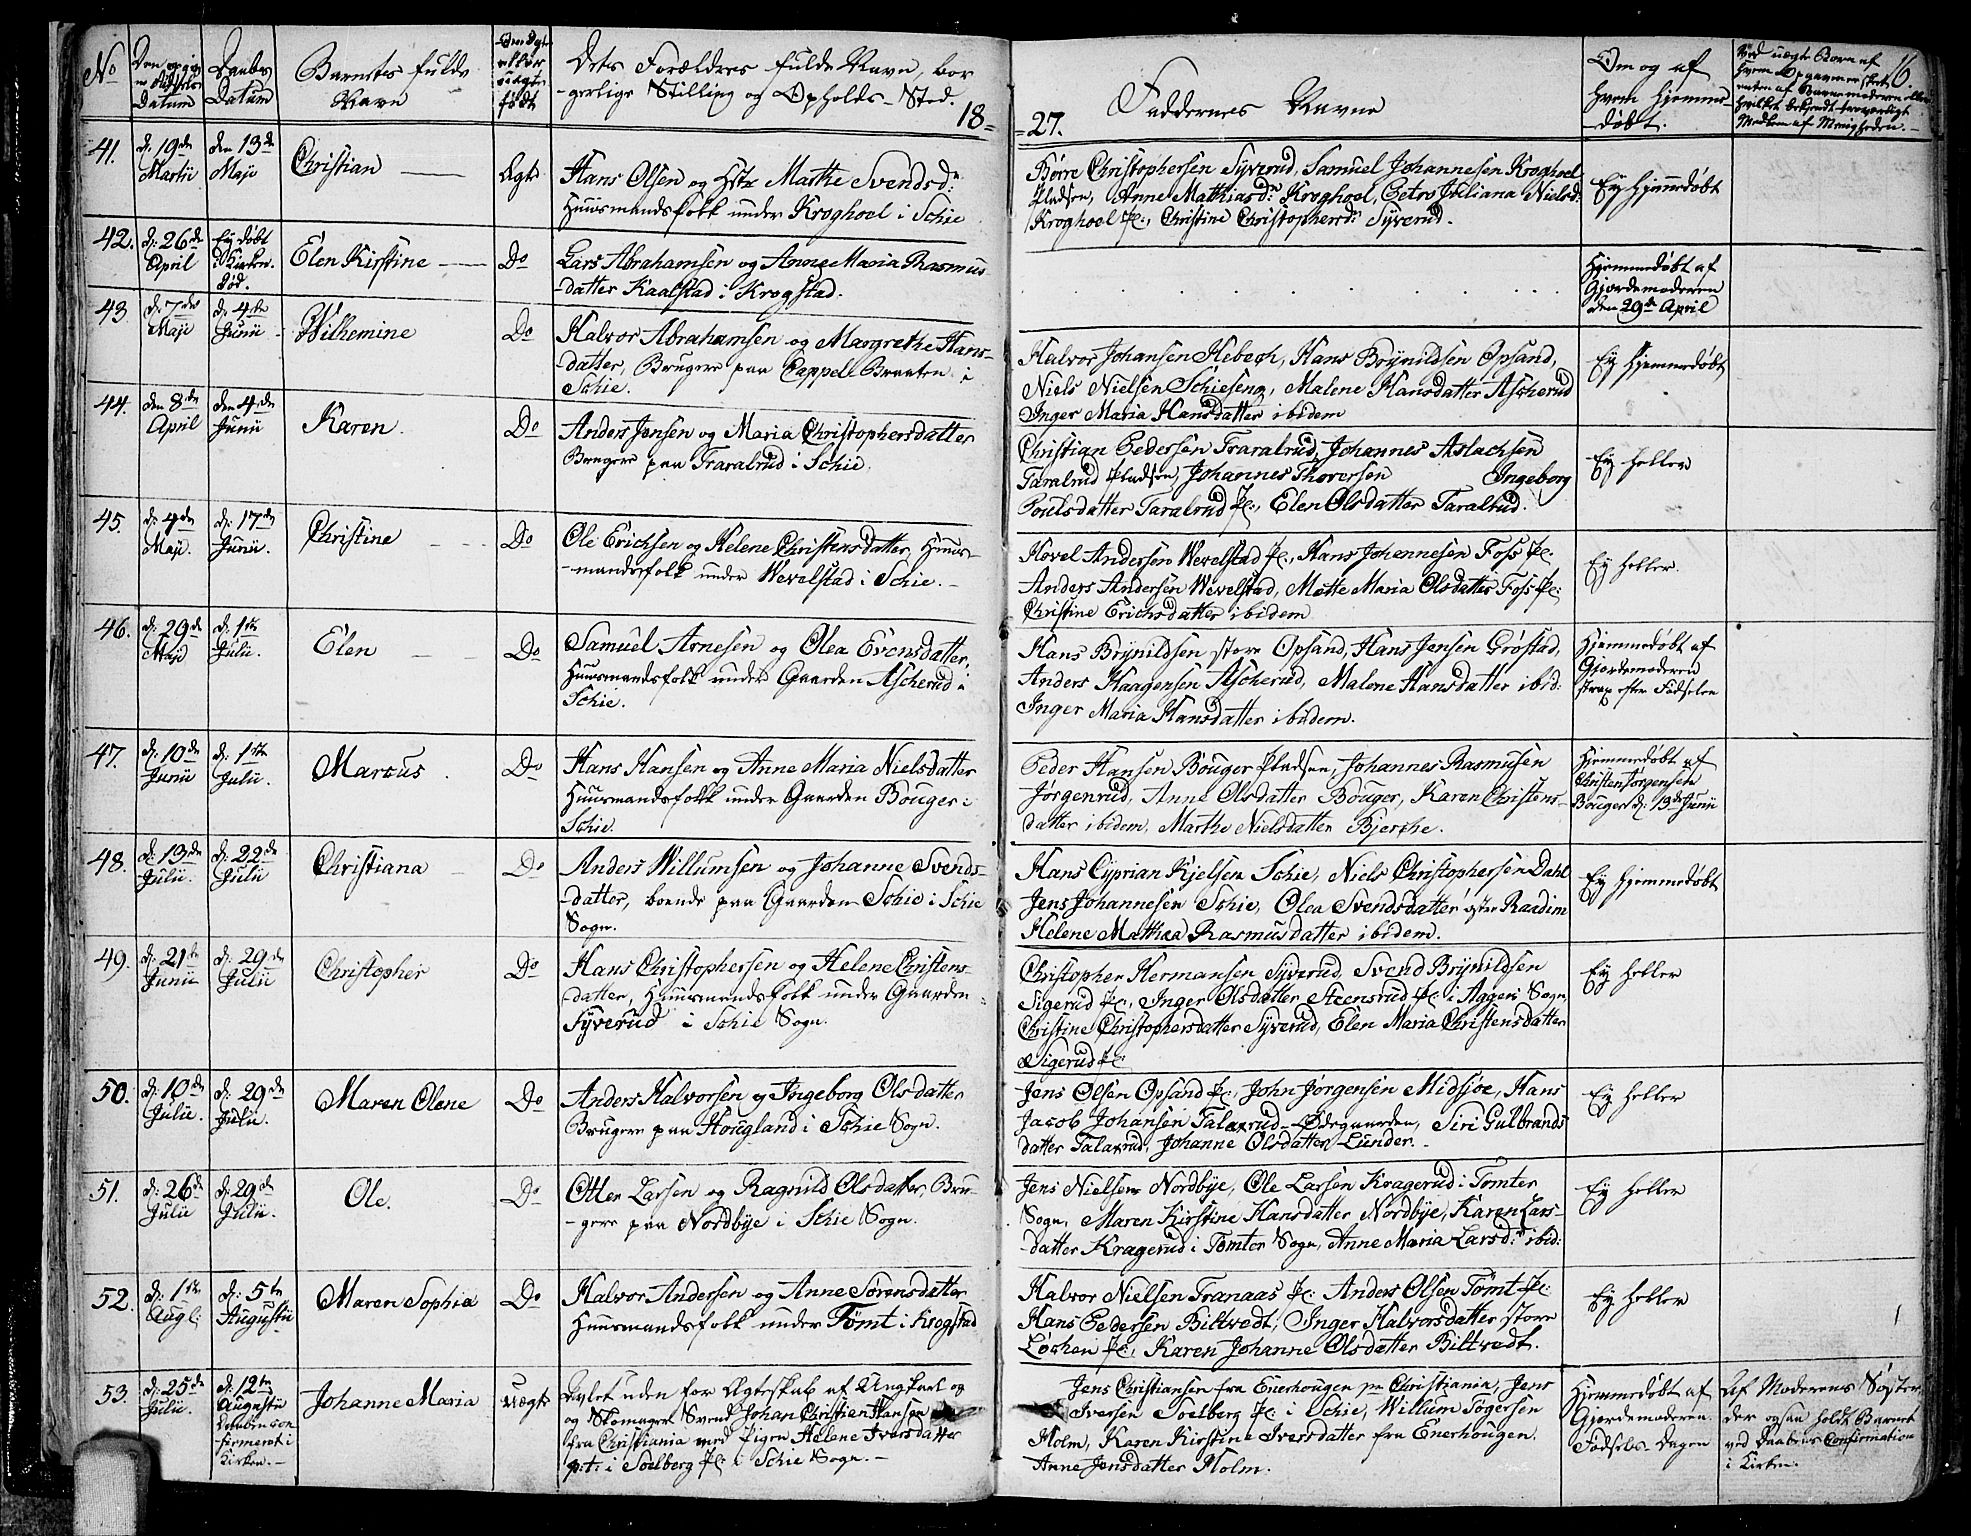 No
Den opgivne Fødsels Datum
Daabs Datum
Barnets fulde Navn
Om Ægte eller uægte født
Dets Forældres fulde Navn, borgerlige Stilling og Opholds-Sted.
18=
=27.
Faddernes Navne
Om og af hvem hjemmedøbt.
16
41.
d: 19de Martii
den 13de Maji
Christian
Ægte
Hans Olsen og Hst: Marthe Svendsd:
Huusmandsfolk under Kroghoel i Schie
Børre Christophersen Syverud, Samuel Johannesen Kroghoel
Pladsen, Anne Mathiasd: Kroghoel, Petro Juliana Nielsd:
Kroghoel Pl:, Christine Christophersd: Syverud.
Ey Hjemmedøbt
42.
d: 26de April
Ey døbt i Kirken. død.
Elen Kirstine
Do
Lars Abrahamsen og Anne Maria Rasmus
datter Kaalstad i Krogstad.
Hjemmedøbt af
Gjordemoderen
den 29de April
43
d: 7de Maji
d: 4de Junii
Wilhemine
Do
Halvor Abrahamsen og Margrethe Hans-
datter, Brugere paa Cappel Braaten i
Schie.
Halvor Johansen Hebegh, Hans Brynildsen Opsand,
Niels Nielsen Schieseng, Malene Hansdatter Ascherud
Inger Maria Hansdatter ibidem
Ey Hjemmedøbt
44.
den 8de April
den 4de Junii
Karen.
Do
Anders Jensen og Maria Christophersdatter
Brugere paa Traralrud i Schie.
Christian Pedersen Traralrud, Johannes Aslachsen
Taralrud Pladsen, Johannes Thoresen Ingeborg
Poulsdatter Taralrud Pl:, Elen Olsdatter Taralrud.
Ey heller
45.
d: 4de Maji.
d: 17de Junii.
Christine
Do
Ole Erichsen og Helene Christensdatter, Huus-
-mandsfolk under Wevelstad i Schie.-
Hovel Andersen Wevelstad Pl:, Hans Johannesen Foss Pl:
Anders Andersen Wevelstad, Mette Maria Olsdatter Foss Pl:
Christine Erichsdatter ibidem
Ey heller.
46.
d: 29de Maji
d: 1ste Julii.
Elen
Do
Samuel Arnesen og Olea Evensdatter,
Huusmandsfolk under Gaarden Ascherud i
Schie.
Hans Brynildsen store Opsand, Hans Jensen Grøstad,
Anders Haagensen Ascherud, Malene Hansdatter ibid:
Inger Maria Hansdatter ibidem.
Hjemmedøbt af
Gjordemoderen
strax efter Fødselen
47.
d: 10de Junii
d: 1ste Julii.
Marcus.
Do
Hans Hansen og Anne Maria Nielsdatter
Huusmandsfolk under Gaarden Bouger i
Schie.
Peder Hansen Bouger Pladsen, Johannes Rasmusen
Jørgenrud, Anne Olsdatter Bouger, Karen Christens-
datter ibidem, Marthe Nielsdatter Bjerche.
Hjemmedøbt af
Christen Jørgensen
Bouger d: 19de Junii
48.
d: 13de Julii.
d: 22de Julii
Christiana
Do
Anders Willumsen og Johanne Svends-
-datter, boende paa Gaarden Schie i Schie
Sogn.
Hans Cyprian Kjelsen Schie, Niels Christophersen Dahl
Jens Johannesen Schie, Olea Svendsdatter øster Raadim
Helene Mathea Rasmusdatter ibidem.
Ey Hjemmedøbt
49.
d: 21de Junii
d: 29de Julii
Christopher
Do
Hans Christophersen og Helene Christens-
datter, Huusmandsfolk under Gaarden
Syverud i Schie Sogn.
Christopher Hermansen Syverud, Svend Brynildsen
Sigerud Pl:, Inger Olsdatter Steensrud Pl: i Aggers Sogn,
Christine Christophersdatter Syverud, Elen Maria Christensdatter
Sigerud Pl:
Ey heller
50.
d: 10de Julii.
d: 29de Julii.
Maren Olene
Do
Anders Halvorsen og Ingeborg Olsdatter
Brugere paa Hougland i Schie Sogn.
Jens Olsen Opsand Pl:, John Jørgensen Midsjøe, Hans
Jacob Johansen Talaxrud-Ødegaarden, Siri Gulbrands-
datter Talaxrud, Johanne Olsdatter Lunder.-
Ey heller
51.
d: 26de Julii
d: 29de Julii.
Ole.
Do
Otter Larsen og Ragnild Olsdatter, Bru-
-gere paa Nordbye i Schie Sogn.
Jens Nielsen Nordbye, Ole Larsen Kragerud i Tømter
Sogn, Maren Kirstine Hansdatter Nordbye, Karen Lars-
-datter Kragerud i Tømter Sogn, Anne Maria Larsd: ibid:
Ey heller
52.
d: 1ste Aug:
d: 5te Augustii
Maren Sophia
Do
Halvor Andersen og Anne Sørensdatter
Huusmandsfolk under Tømt i Krogstad
Halvor Nielsen Tranaas Pl: Anders Olsen Tømt Pl:
Hans Pedersen Biltvedt, Inger Halvorsdatter store
Løchen Pl:, Karen Johanne Olsdatter Biltvedt.
Ey heller
53.
d: 25de Julii.
d: 12te Augustii Daaben confirmeret i Kirken.-
Johanne Maria
uægte
Avlet uden for Ægteskab af Ungkarl og
og Skomager Svend Johan Christian Hansen
fra Christiania med Pigen Helene Iversdatter
p:t: i Soelberg Pl: i Schie Sogn.-
Jens Christiansen fra Enerhougen pr Christiania, Jens
Iversen Soelberg Pl: i Schie, Willum Sørgersen
Holm, Karen Kirstine Iversdatter fra Enerhougen.
Anne Jensdatter Holm.
Hjemmedøbt af
Gjordemoderen.
Fødsels-Dagen
Af Moderens Søster
der ogsaa holdt Barnet
ved Daabens Confirmation
i Kirken.